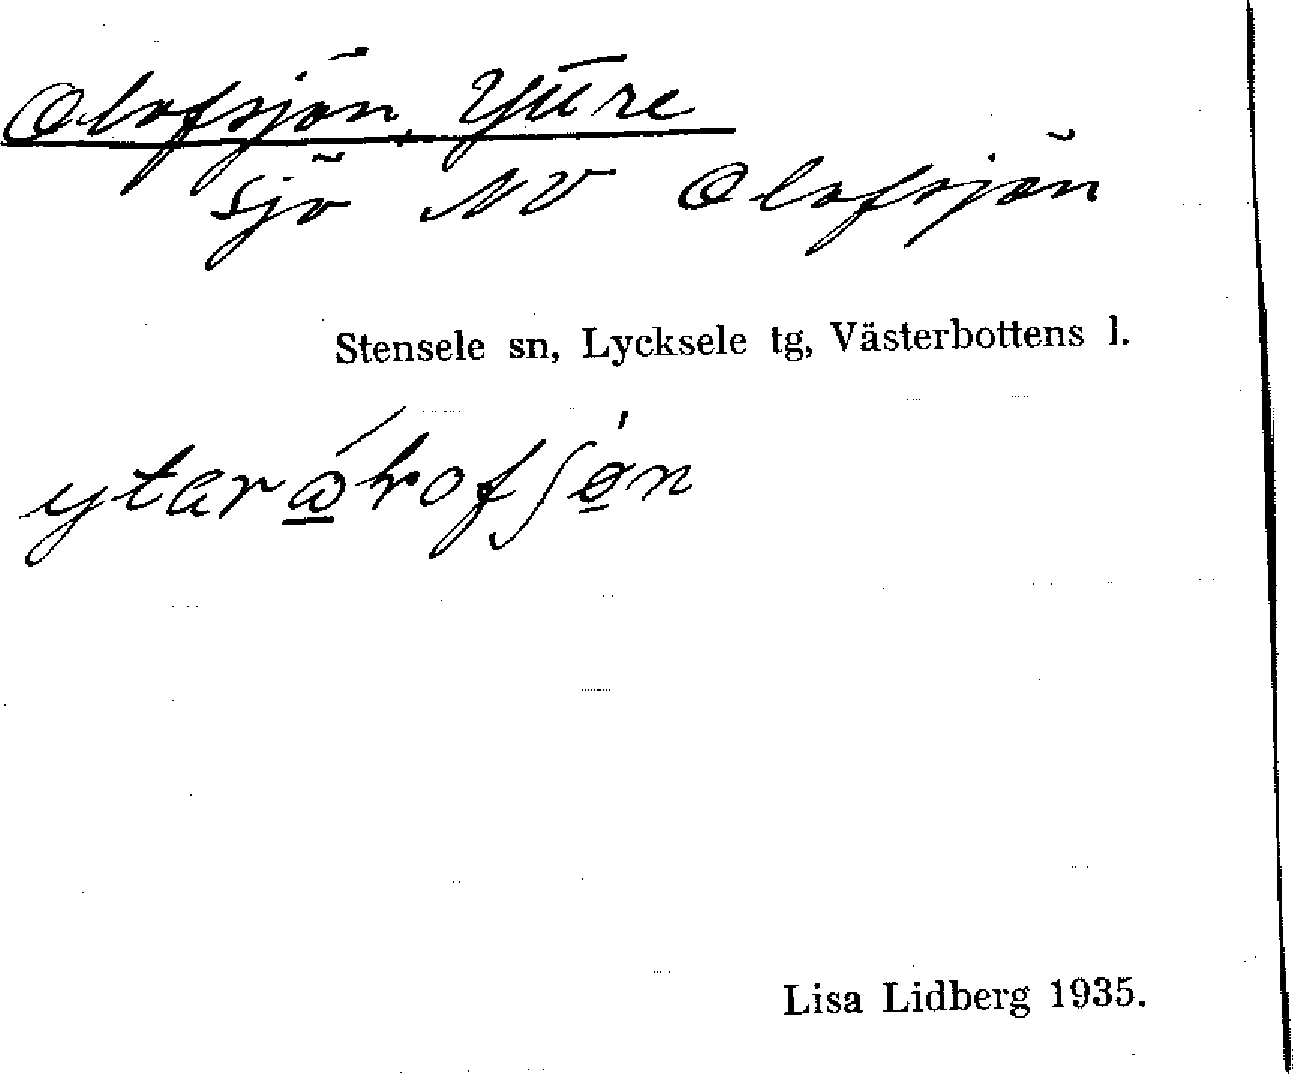 Olofsjön, Yttre
Sjö NV Olofsjön
Stensele sn, Lycksele tg, Västerbottens l.
Lisa Lidberg 1935.